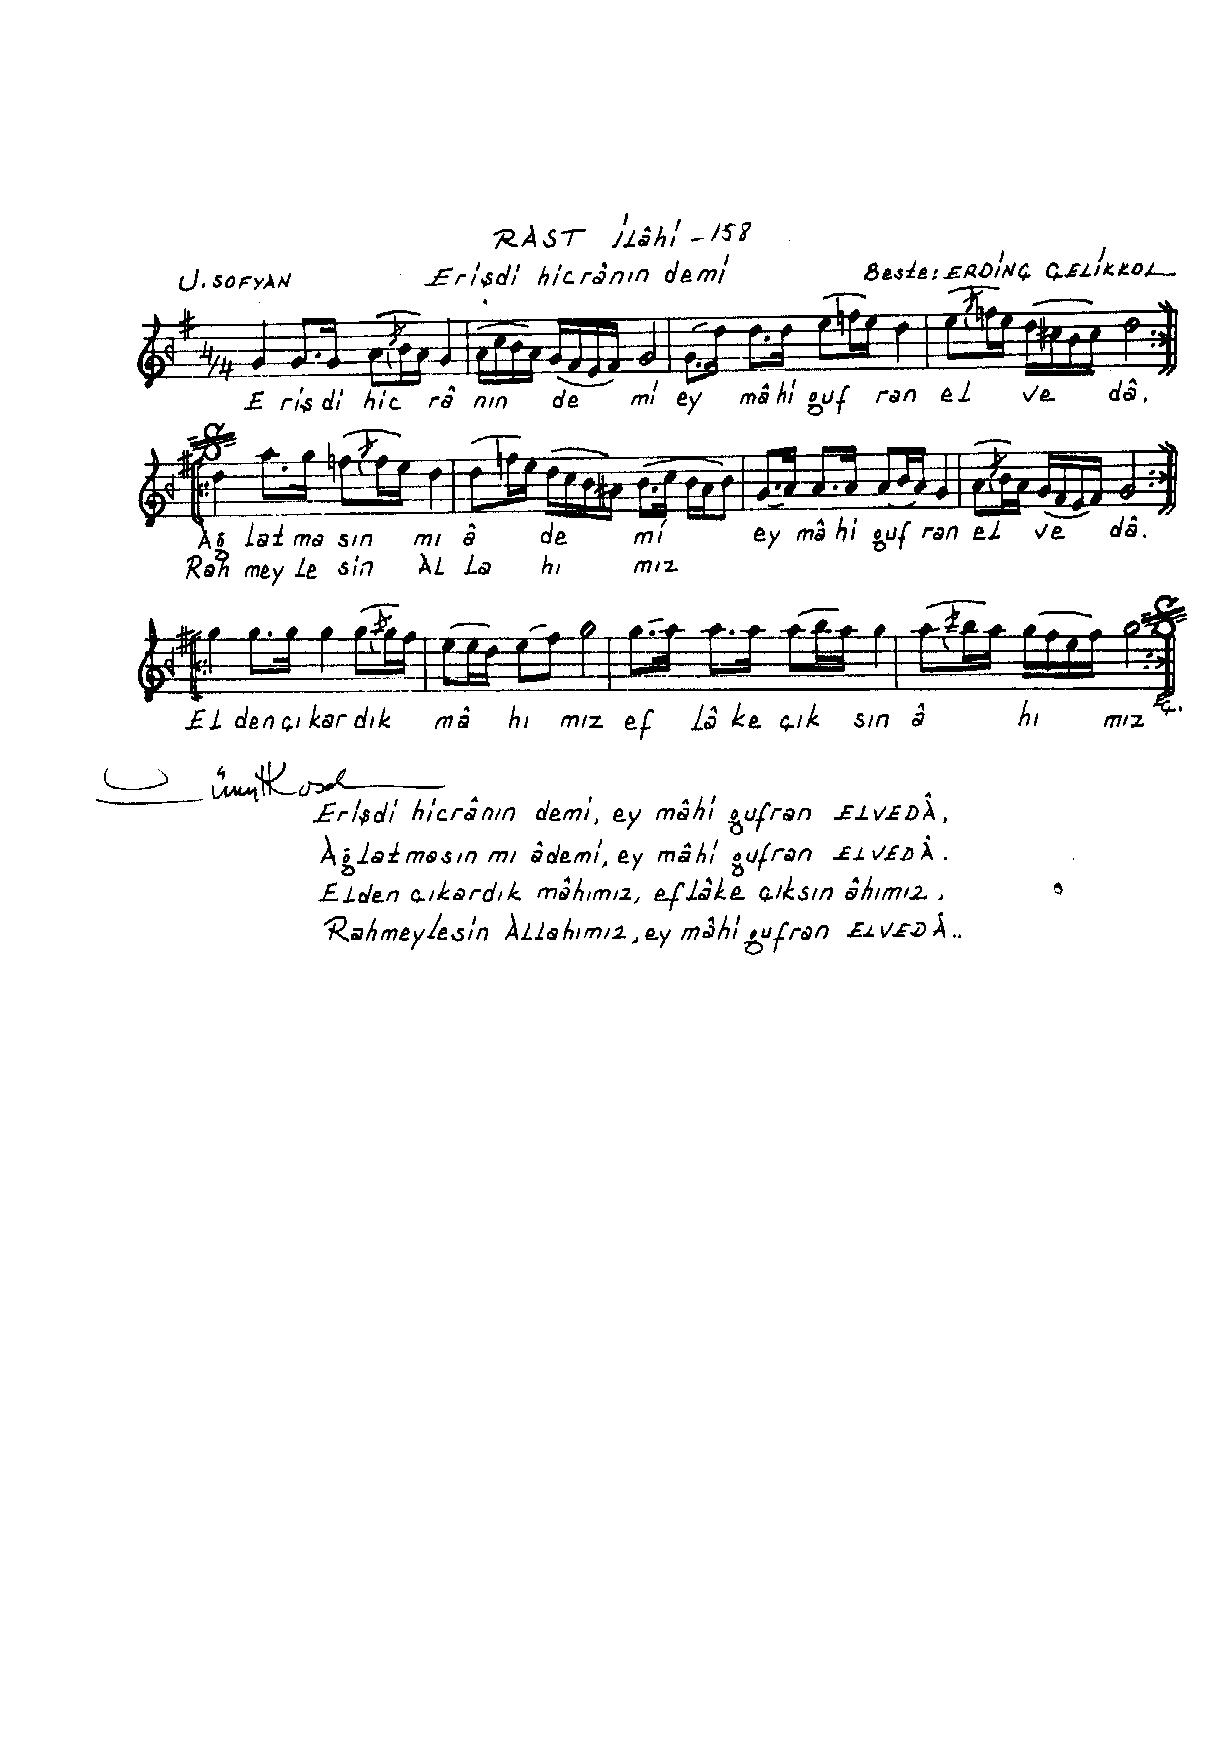 RAST İLâhİ - 158
U. SOFYAN
Erişdi hicrânın demi
Beste: ERDİNÇ ÇELİKKOL
4/4
E riş di hic râ nın de mi ey mâ hi guf ran el ve dâ.
Ağ lat ma sın mı â de mi ey mâ hi guf ran el ve dâ.
Rah mey le sin AL La hı mız
EL den çı kar dık mâ hı mız ef lâ ke çık sın â hı mız
Erişdi hicrânın demi, ey mâhi gufran ELVEDÂ,
Ağlatmasın mı âdemi, ey mâhi gufran ELVEDÂ.
Elden çıkardık mâhımız, eflâke çıksın âhımız,
Rahmeylesin Allahımız, ey mâhi gufran ELVEDÂ..